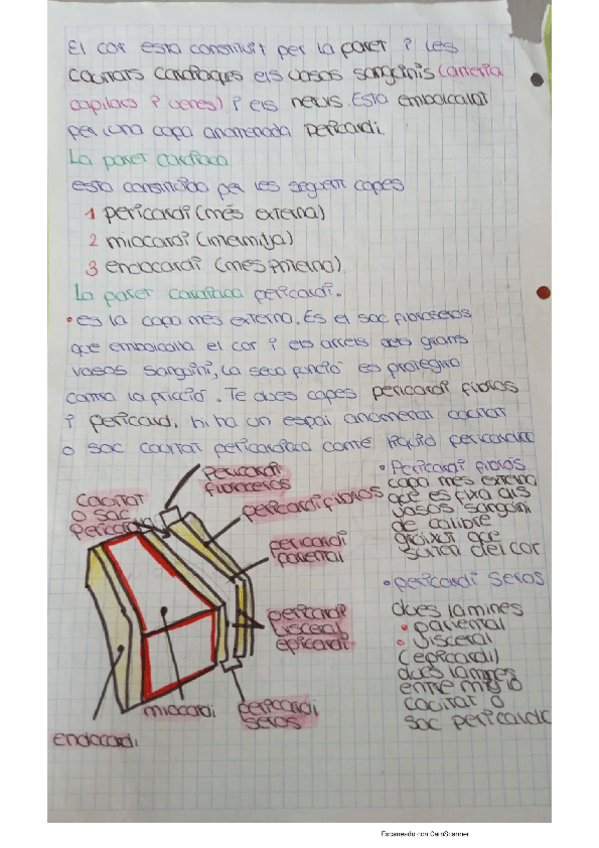 El cor esta constituit per la paret i les
cavitats cardiaques els vasos sanguinis (arteria
capilars i venes) i els nervis. Esta embolcallat
per una capa anomenada pericardi.
La paret cardiaca
esta constituida per les seguent capes
1 pericardi (més externa)
2 miocardi (intermitja)
3 endocardi (mes interna)
La paret cardiaca pericardi.
• es la capa més externa. Es el sac fibroseros
que embolcalla el cor i els arrels dels grans
vasos sanguini, La seva funció es protegirlo
contra la fricció. Te dues capes pericardi fibros
i pericardi, hi ha un espai anomenat cavitat
o sac cavitat pericardiaca conté liquid pericardiac
pericardi
fibroseros
Cavitat
o sac
pericardia
pericardi fibros
pericardi
parietal
pericardi
visceral
epicardi
pericardi
seros
miocardi
endocardi
• Pericardi fibros
capa mes externa
que es fixa als
vasos sanguini
de calibre
groixut que
surten del cor
• pericardi seros
dues lamines
• parietal
• visceral
(epicardi)
dues lamines
entre mig
cavitat o
sac pericardic
Escaneado con CamScanner